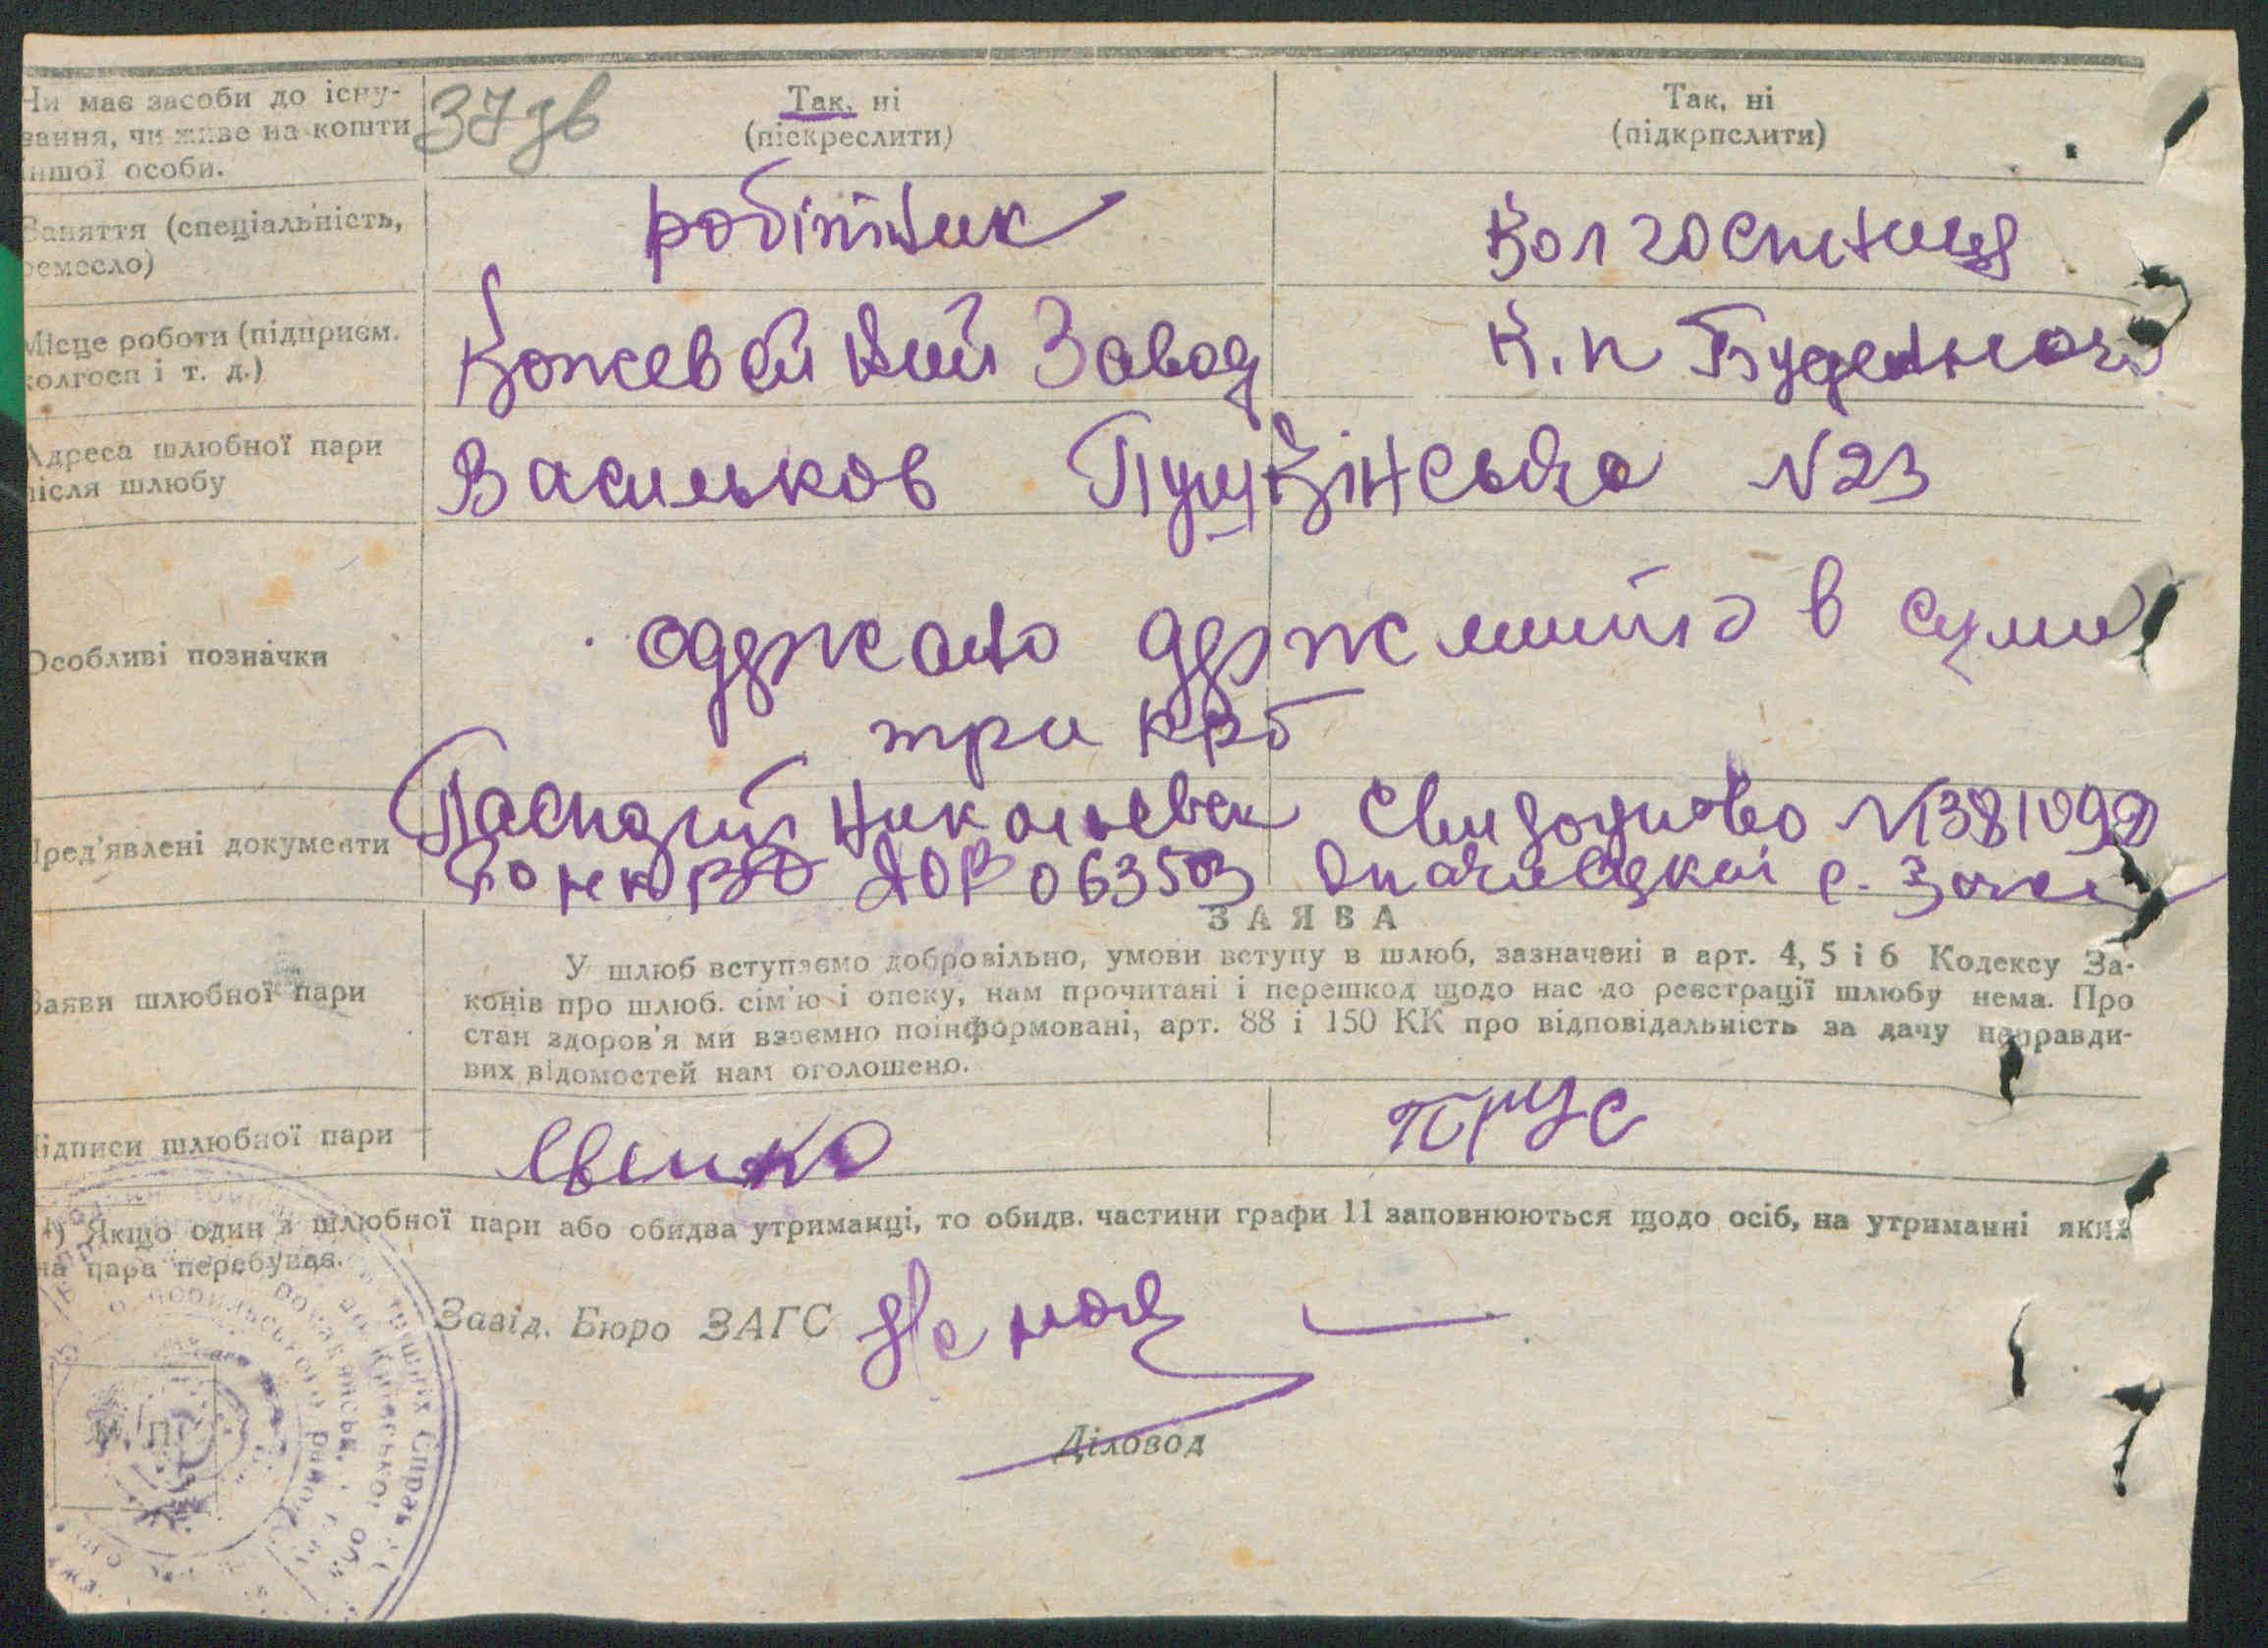 Чи має засоби до існу-
вання, чи живе на кошти
іншої особи.
37 зв
Так, ні
(піскреслити)
Так, ні
(підкрпслити)
Заняття (спеціальність,
ремесло)
робітник
Колгоспниця
Місце роботи (підприєм.
колгосп і т. д.)
Кожевений Завод
К.п Буденного
Адреса шлюбної пари
після шлюбу
Васильков Пушкінська N 23
Особливі позначки
одержано держмийто в суми
три крб
Пред'явлені документи
Паспорт Николаевск
N 1381092
063503
ЗАЯВА
Заяви шлюбної пари
У шлюб вступаємо добровільно, умови вступу в шлюб, зазначені в арт. 4, 5 і 6 Кодексу За-
конів про шлюб. сім'ю і опеку, нам прочитані і перешкод щодо нас до реєстрації шлюбу нема. Про
стан здоров'я ми взаємно поінформовані, арт. 88 і 150 КК про відповідальність за дачу неправди-
вих відомостей нам оголошено.
Підписи шлюбної пари
Трус
*) Якщо один з шлюбної пари або обидва утриманці, то обидв. частини графи 11 заповнюються щодо осіб, на утриманні яких
на пара перебуває.
Завід. Бюро ЗАГС
Діловод